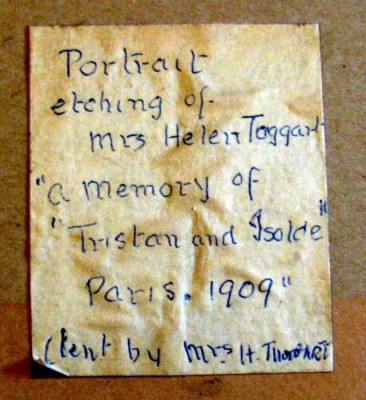 Portrait
etching of
mrs Helen Taggart
"a memory of
"Tristan and Isolde"
Paris. 1909."
(lent by mrs H.